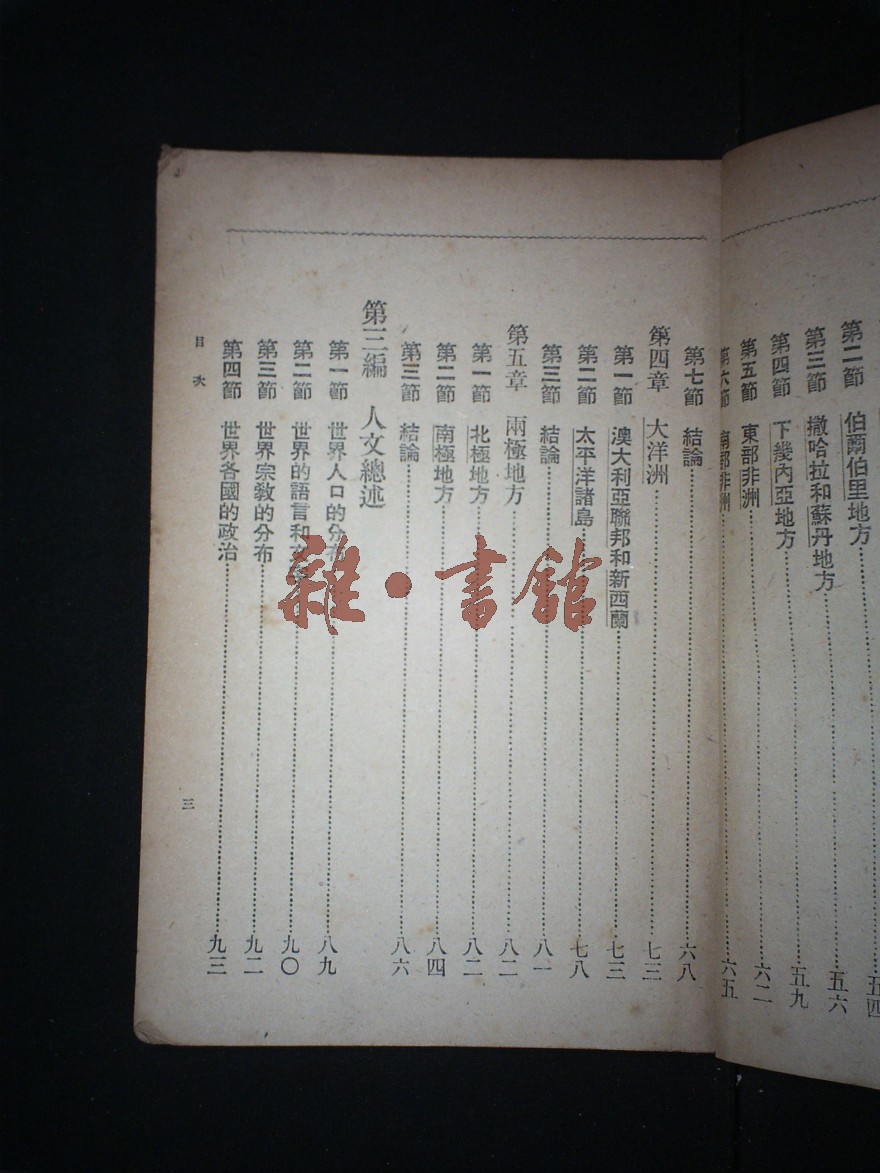 第二節 伯爾伯里地方 五四
第三節 撒哈拉和蘇丹地方 五六
第四節 下幾內亞地方 五九
第五節 東部非洲 六二
第六節 南部非洲 六五
第七節 結論 六八
第四章 大洋洲 七三
第一節 澳大利亞聯邦和新西蘭 七三
第二節 太平洋諸島 七八
第三節 結論 八一
第五章 兩極地方 八二
第一節 北極地方 八二
第二節 南極地方 八四
第三節 結論 八六
第三編 人文總述
第一節 世界人口的分布 八九
第二節 世界的語言和 九〇
第三節 世界宗教的分布 九二
第四節 世界各國的政治 九三
目次
三
雜·書館